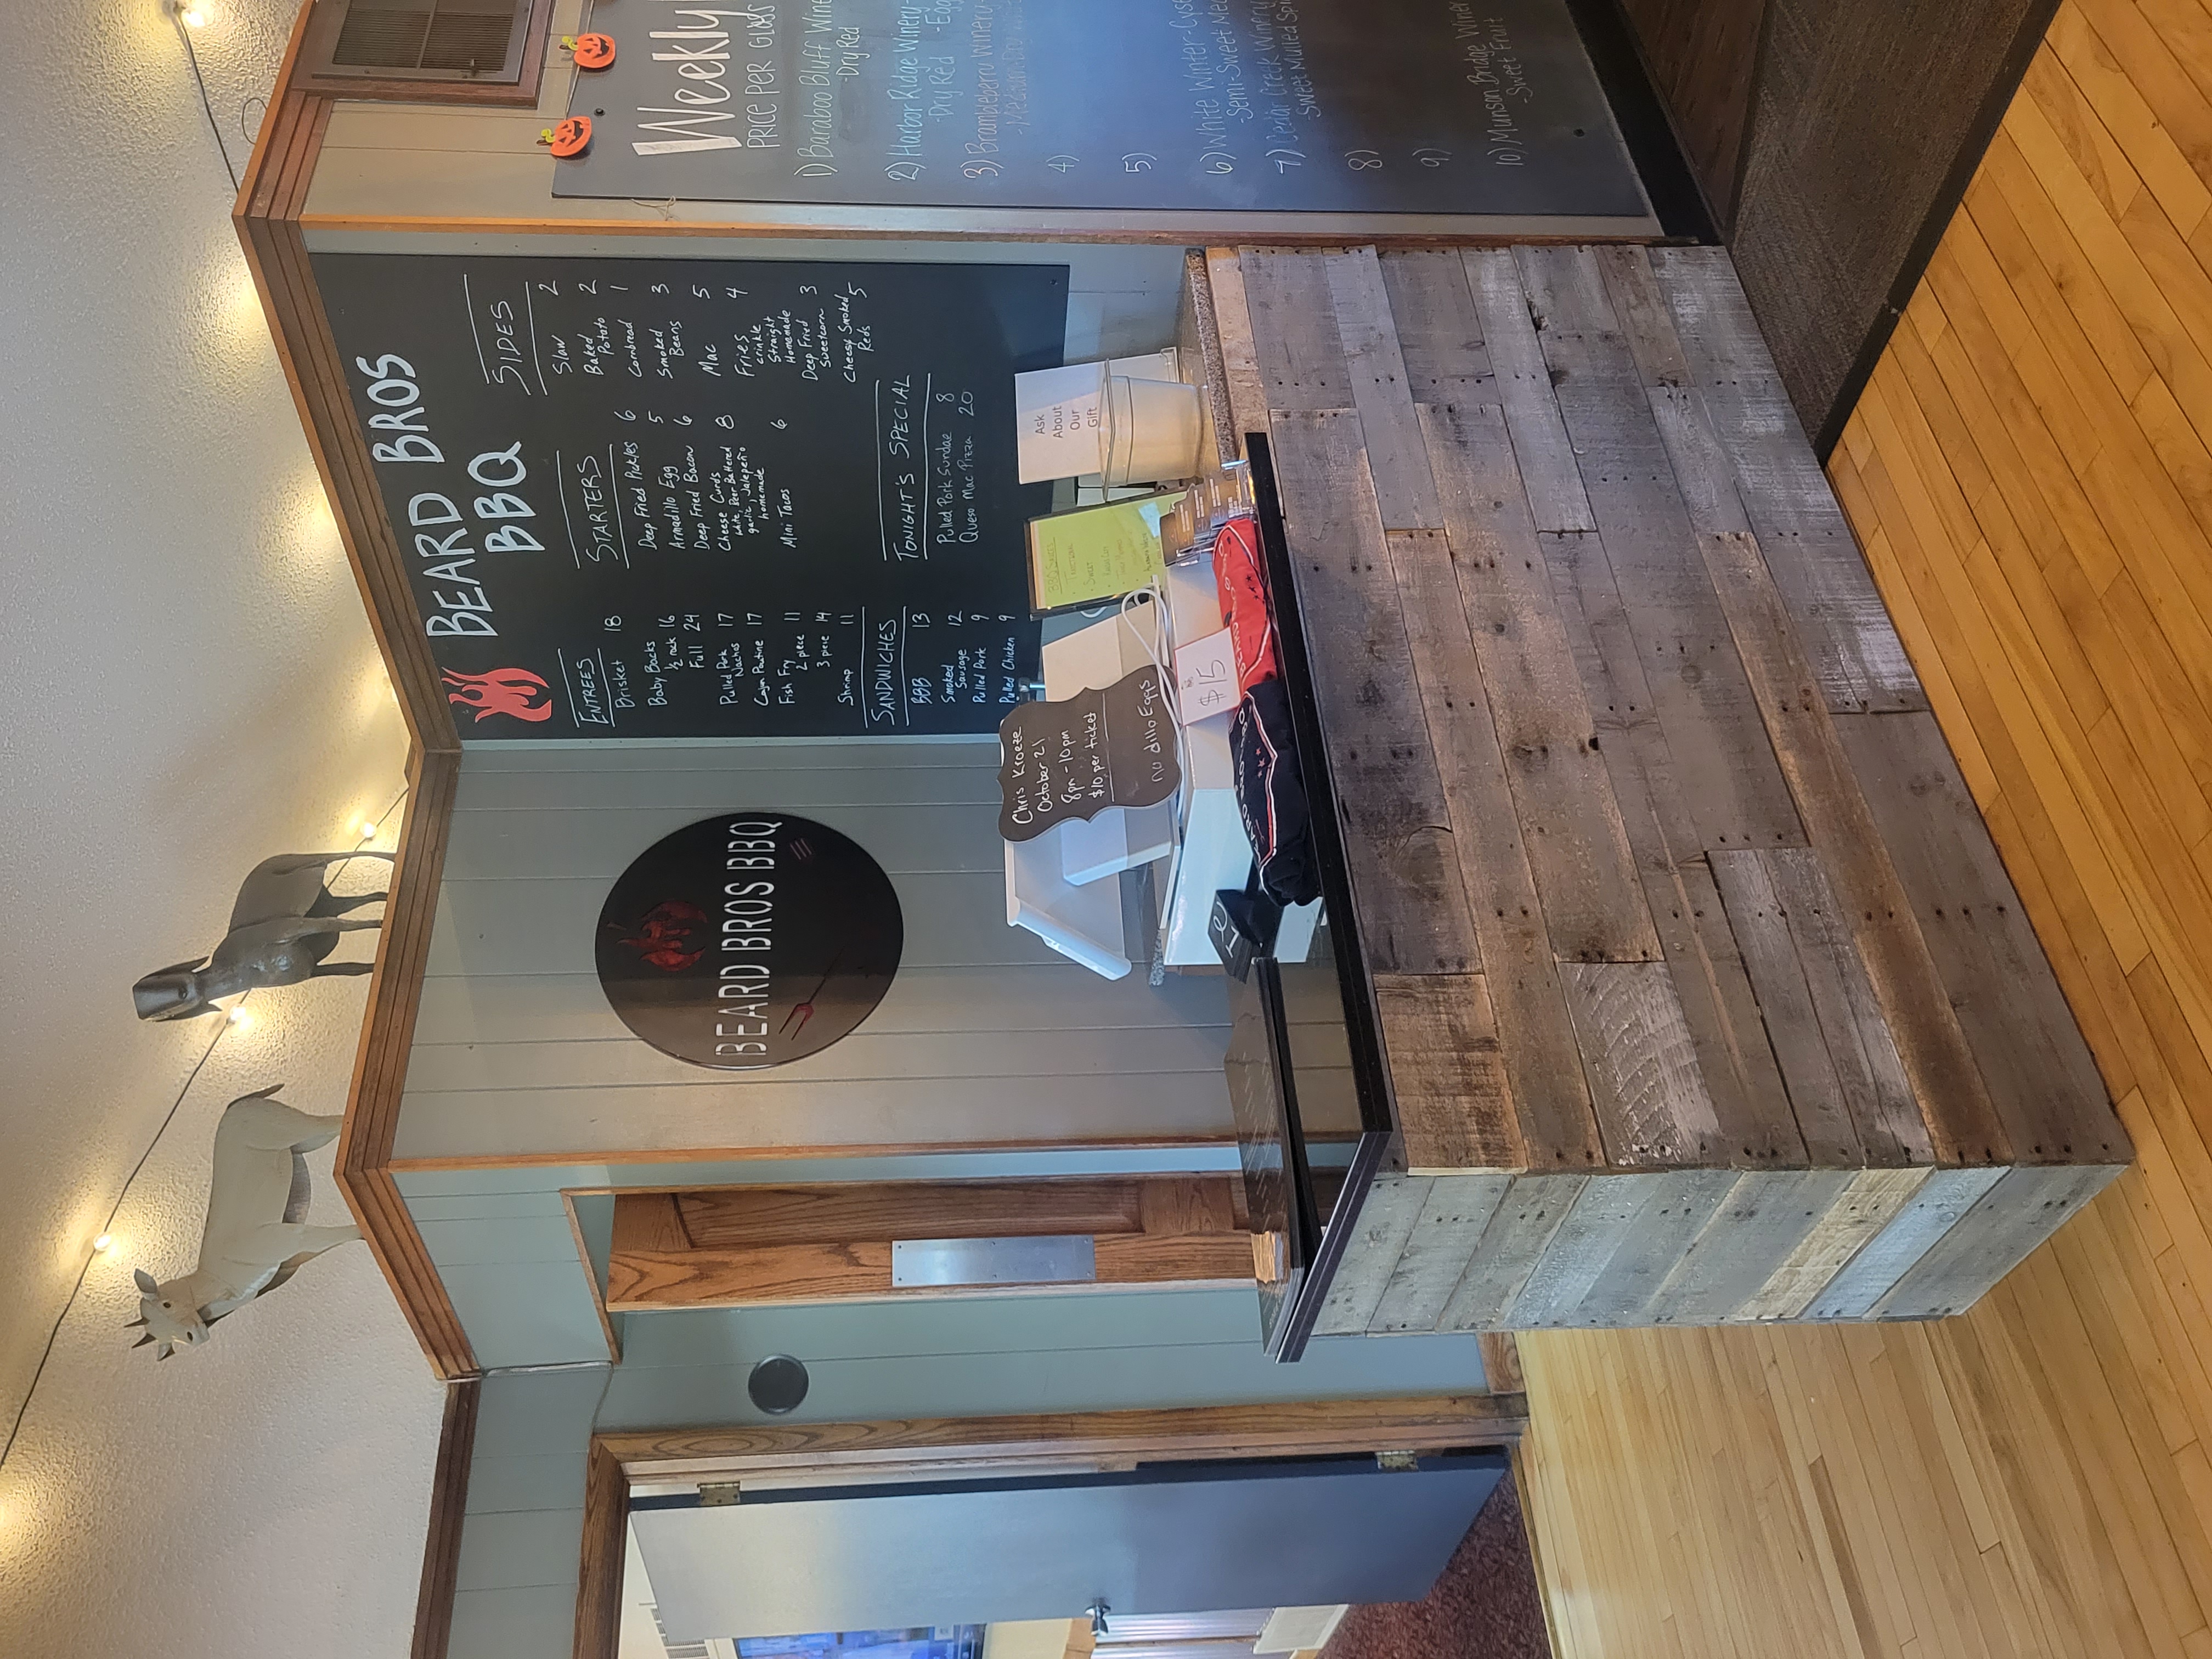 BEARD BROS
BBQ
ENTREES
Brisket 18
Baby Backs
1/2 rack 16
Full 24
Pulled Pork
Nachos 17
Cajun Poutine 17
Fish Fry
2 piece 11
3 piece 14
Shrimp 11
SANDWICHES
BBB 13
Smoked
Sausage 12
Pulled Pork 9
Pulled Chicken 9
STARTERS
Deep Fried Pickles 6
Armadillo Egg 5
Deep Fried Bacon 6
Cheese Curds 8
White, Beer Battered
garlic, Jalepeño
homemade
Mini Tacos 6
TONIGHT'S SPECIAL
Pulled Pork Sundae 8
Queso Mac Pizza 20
SIDES
Slaw 2
Baked
Potato 2
Cornbread 1
Smoked
Beans 3
Mac 5
Fries 4
crinkle
Straight
Homemade
Deep Fried
Sweetcorn 3
Cheesy Smoked
Reds 5
BEARD BROS BBQ
Chris Kroeze
October 21
8pm - 10pm
$10 per ticket
no dillo Eggs
BBQ Sauces
Traditional
Sweet
Ask
About
Our
Gift
$15
BEARD BROS BBQ
BEARD BROS BBQ
Weekly
PRICE PER GLASS
1) Baraboo Bluff Wine
-Dry Red
2) Harbor Ridge Winery-
-Dry Red -Egg
3) Brambleberry Winery-
-Medium-Dry
4)
5)
6) White Winter-Cyse
-Semi-Sweet Mea
7) Cedar Creek Winery
-Sweet Mulled Spi
8)
9)
10) Munson Bridge Winer
-Sweet Fruit